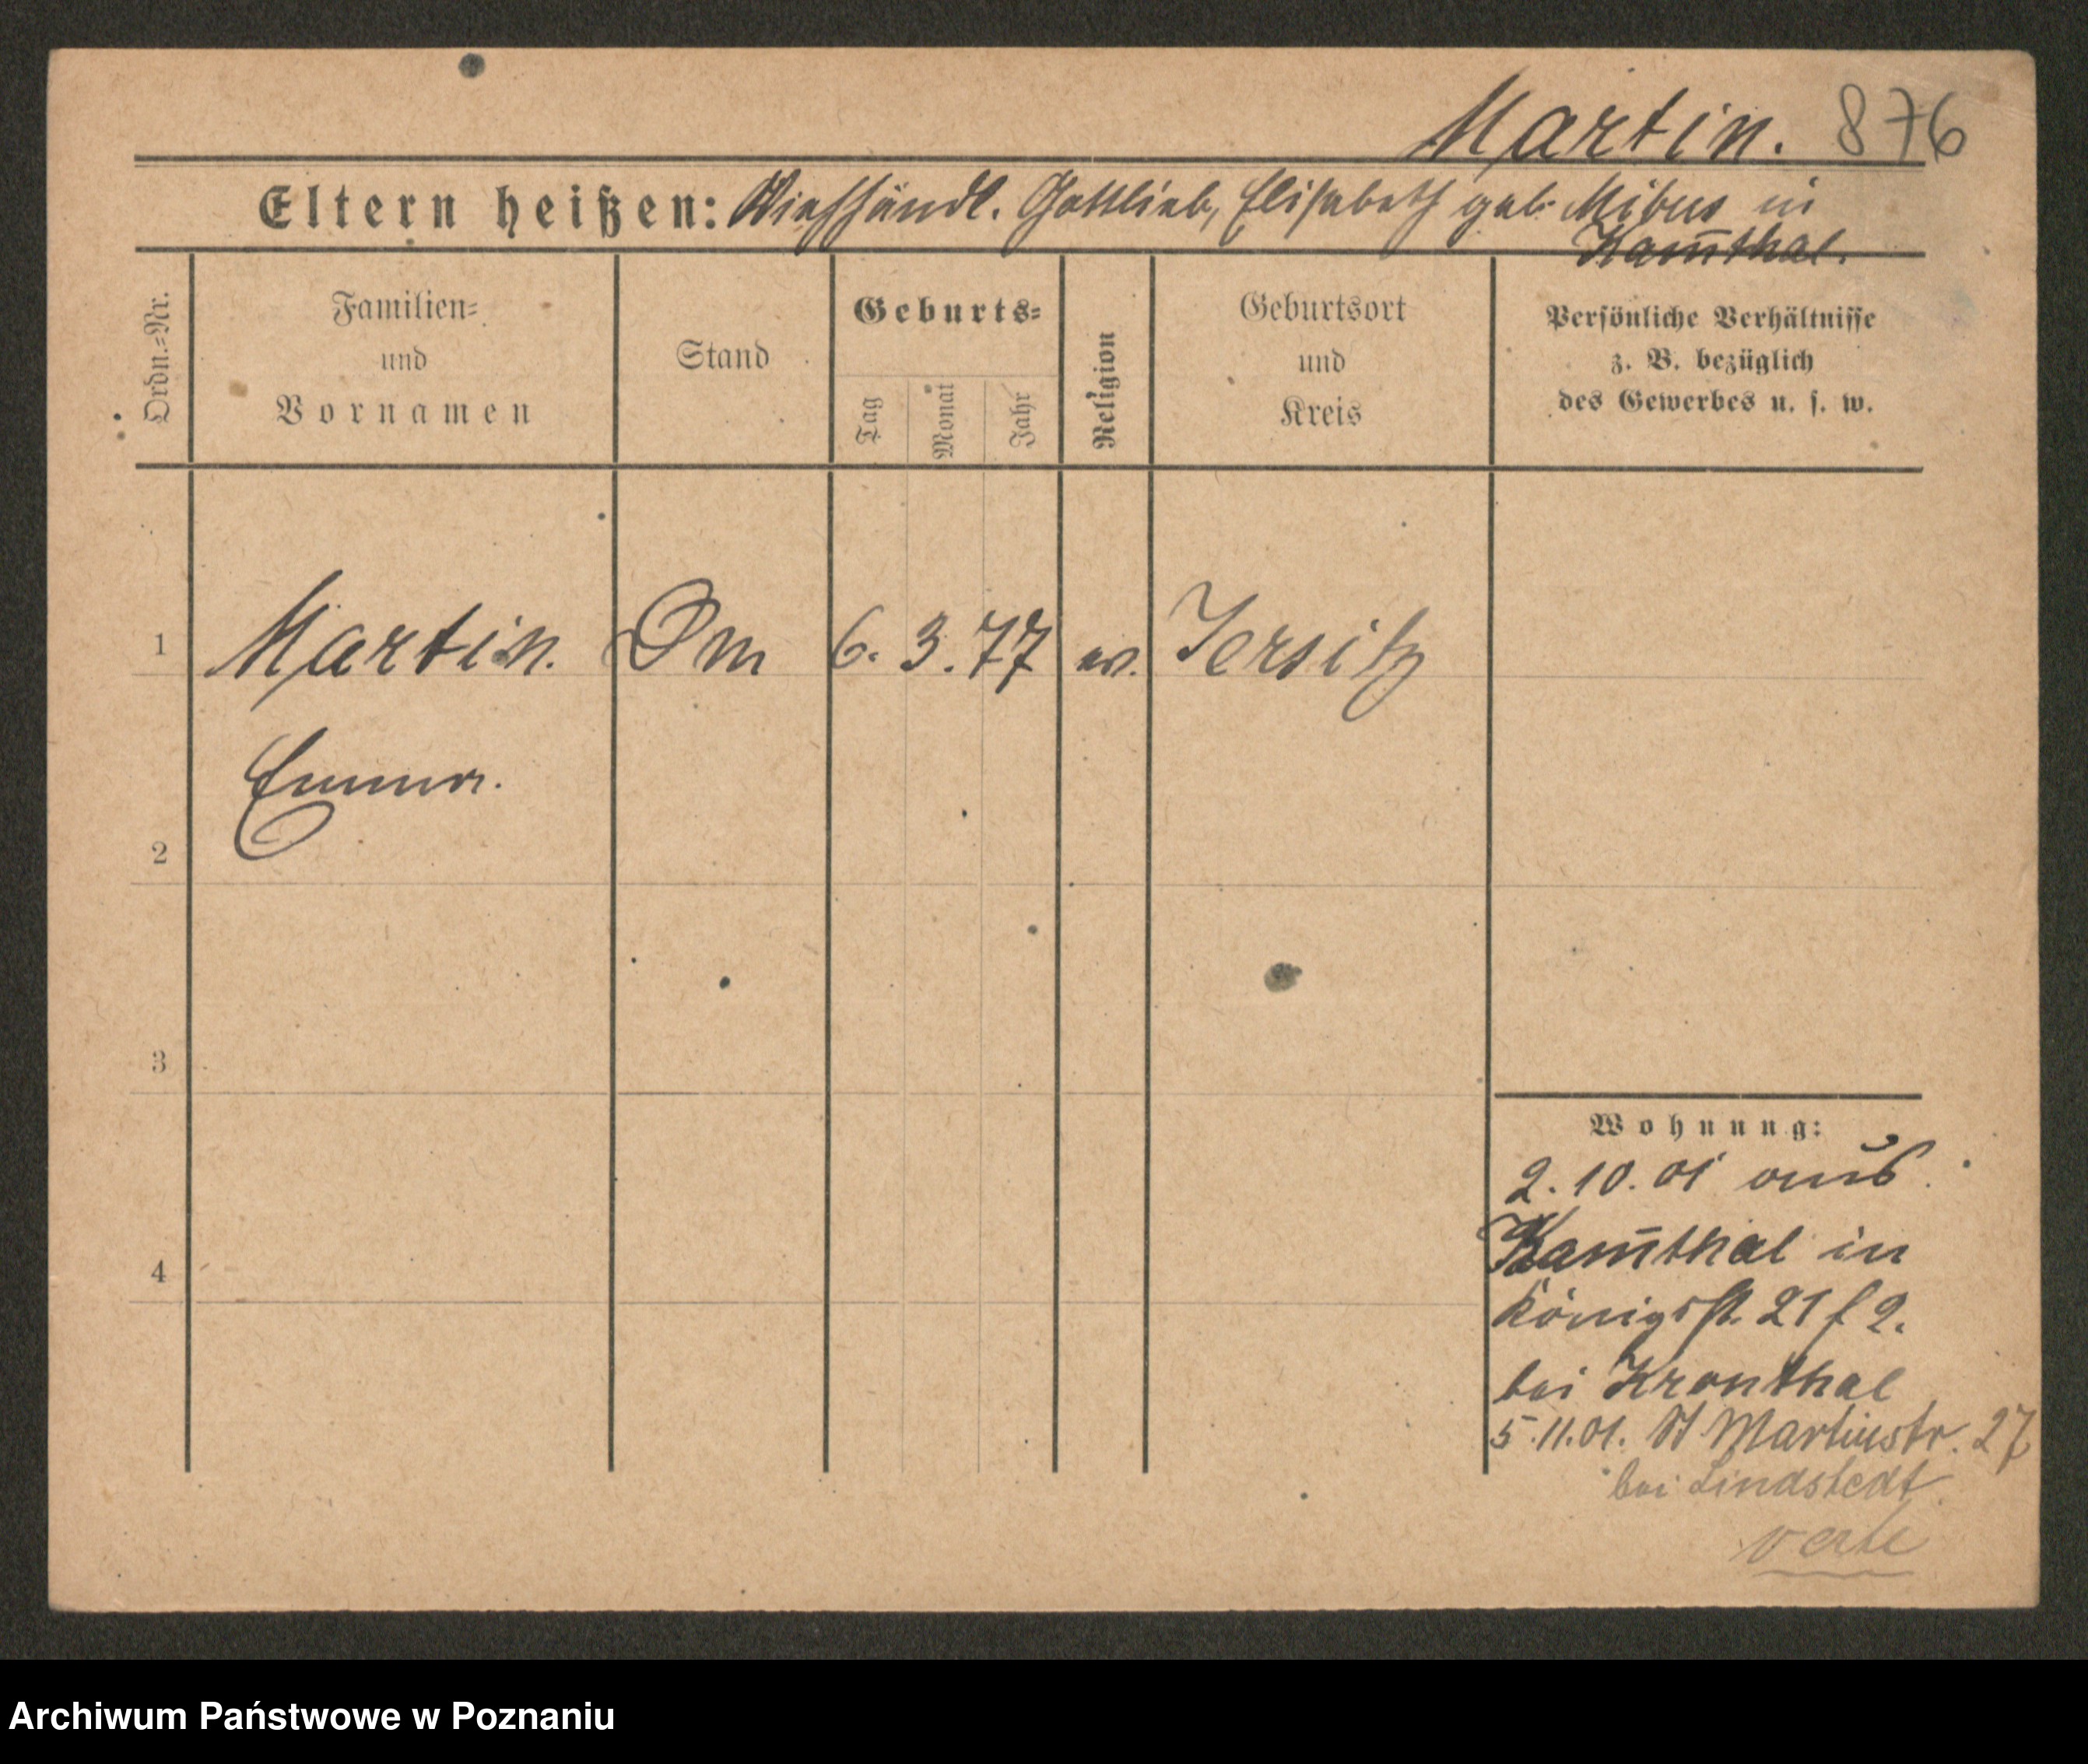 Martin. 876
Eltern heißen: Viehhändl. Gottlieb, Elisabeth geb. Mibus in
Kam̅thal.
Ordn.=Nr.
Familien=
und
Vornamen
Stand
Geburts=
Tag
Monat
Jahr
Religion
Geburtsort
und
Kreis
Persönliche Verhältnisse
z. B. bezüglich
des Gewerbes u. s. w.
1 Martin. 6. 3. 77 ev. Jersitz
Emma.
2
3
4
Wohnung:
2. 10. 01 aus
Kam̅thal in
Königsstr. 21 2.
bei Kronthal
5.11.01. St Martinstr. 27
bei Lindstedt
verte
Archiwum Państwowe w Poznaniu